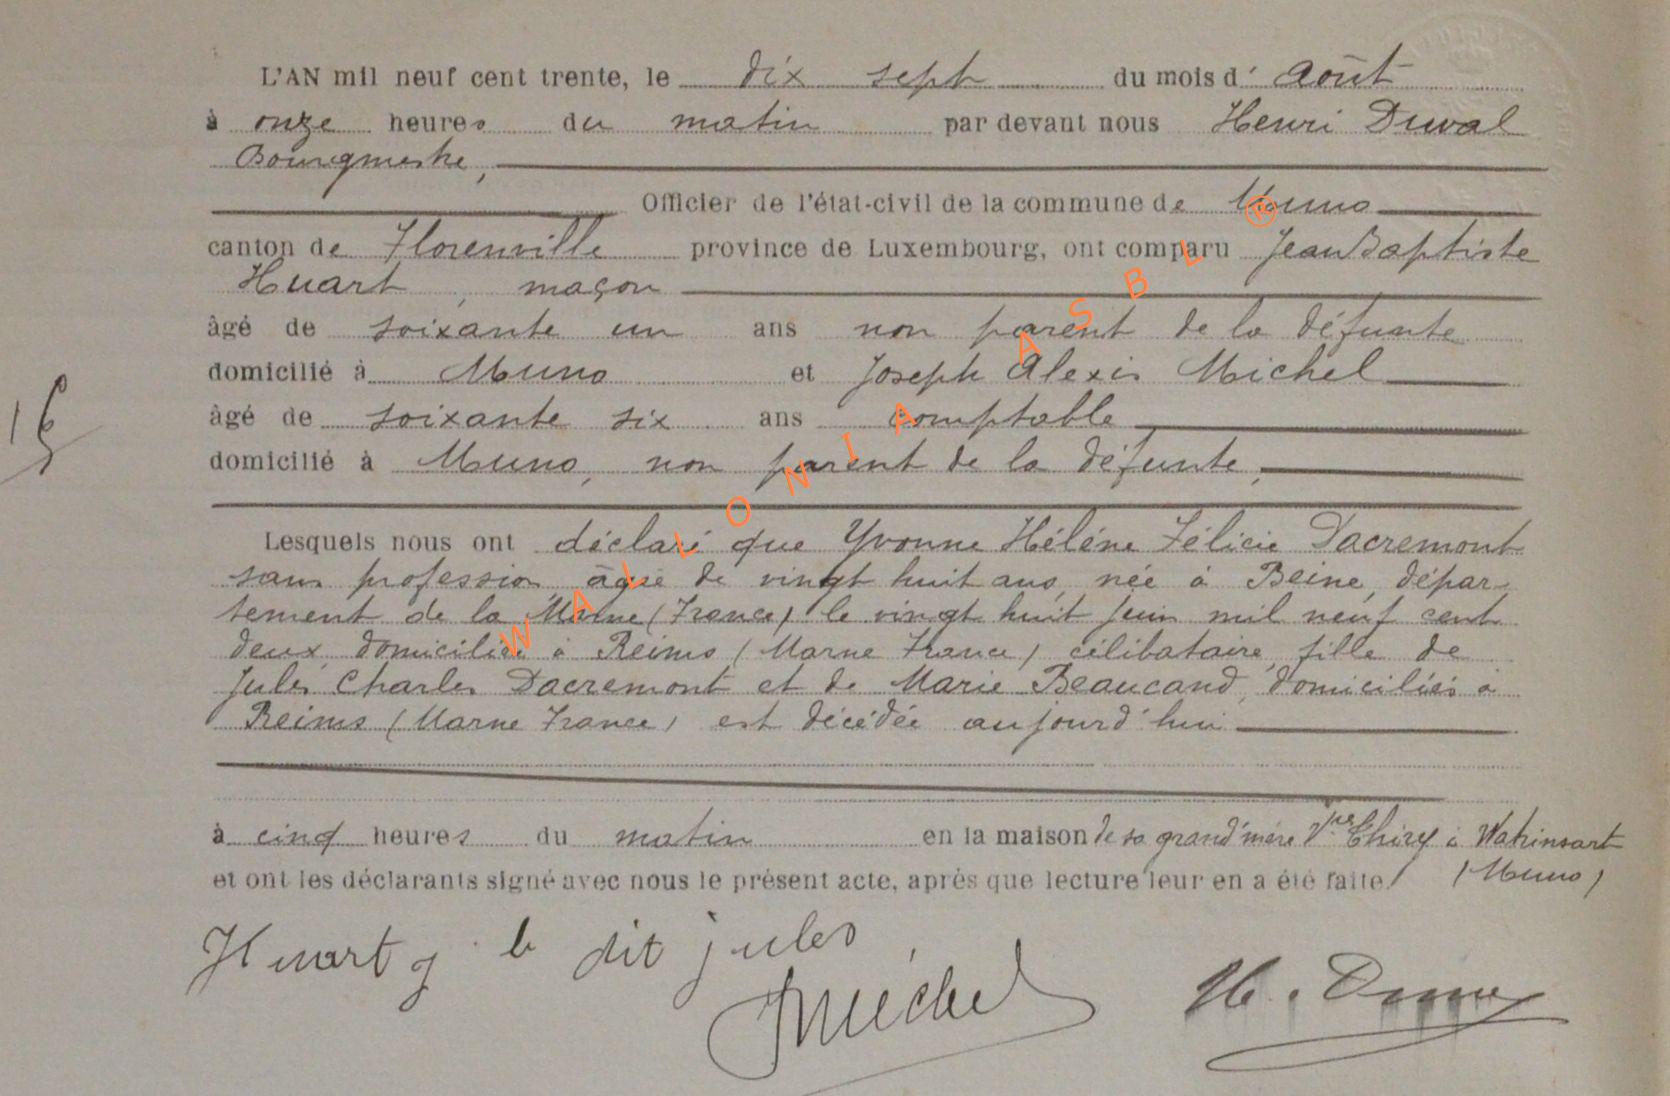 L'AN mil neuf cent trente, le dix sept du mois d' Août
à onze heures du matin par devant nous Henri Duval
Bourgmestre,
Officier de l'état-civil de la commune de Muno
canton de Florenville province de Luxembourg, ont comparu Jean Baptiste
Huart, maçon
âgé de soixante un ans non parent de la défunte
domicilié à Muno et Joseph Alexis Michel
âgé de soixante six ans comptable
domicilié à Muno, non parent de la défunte,
16
Lesquels nous ont déclaré que Yvonne Hélène Félicie Dacremont
sans profession, âgée de vingt huit ans, née à Beine, dépar-
tement de la Marne (France) le vingt huit juin mil neuf cent
deux, domiciliée à Reims (Marne France) célibataire, fille de
Jules Charles Dacremont et de Marie Beaucand, domiciliés à
Reims (Marne France) est décédée aujourd'hui
à cinq heures du matin en la maison de sa grand'mère Vve Thiry à Watrinsart
et ont les déclarants signé avec nous le présent acte, après que lecture leur en a été faite. (Muno)
Huart j b dit jules
JMichel
H. Duval
WALLONIA ASBL ®